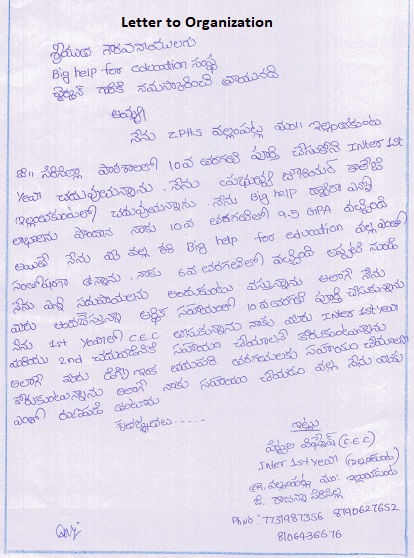 Letter to Organization
శ్రీయుత గౌరవనీయులగు
Big help for education సంస్థ
చైర్మన్ గారికి నమస్కరించి వ్రాయునది
అయ్యా
నేను ZPHS వల్లంపట్ల మం॥ ఇల్లంతకుంట
జి॥ సిరిసిల్ల పాఠశాలలో 10వ తరగతి పూర్తి చేసుకొని Inter 1st
Year చదువుచున్నాను. నేను జూనియర్ కాలేజి
ఇల్లంతకుంటలో చదువుచున్నాను నేను Big help ద్వారా ఎన్నో
లాభాలను పొందాను నాకు 10వ తరగతిలో 9.5 GPA వచ్చింది
అయితే నేను మీ వల్ల కరి Big help for education వల్ల ఎంతో
సంతోషంగా ఉన్నాను. నాకు 6వ తరగతిలో వచ్చింది అప్పటి నుండి
నేను ఎన్నో సదుపాయలను అందుకుంటు వస్తున్నాను అలాగే నేను
మీరు అందిస్తున్న ఆర్థిక సహాయంతో 10వ తరగతి పూర్తి చేసుకున్నాను
నేను 1st Yearలో C.E.C తీసుకున్నాను నాకు మీరు Inter 1st Year
మరియు 2nd చదువడానికి సహాయం చేయాలని కోరుకుంటున్నాను
అలాగే మీరు ఇంకా తరగతులకు సహాయం చేయాలని
కోరుకుంటున్నాను అలాగే నాకు సహాయం చేయడం వల్ల నేను మీకు
ఎంతో రుణపడి ఉంటాను
కృతజ్ఞతలు .....
ఇట్లు
(C.E.C)
Inter 1st Year (ఇల్లంతకుంట)
గ్రా. వల్లంపట్ల మం. ఇల్లంతకుంట
జి. రాజన్న సిరిసిల్ల
Ph.no : 7731987356 8790627652
8106436676